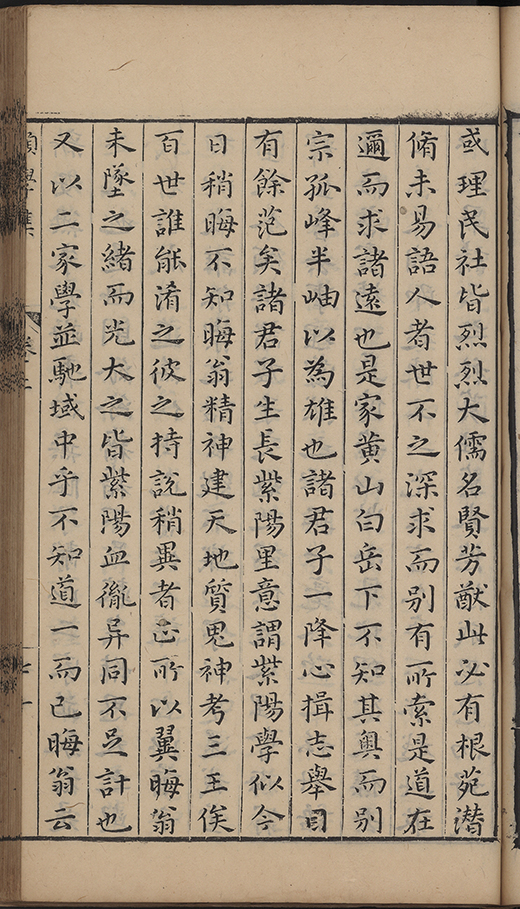 或理民社皆烈烈大儒名賢芳猷此必有根苑潛
脩未易語人者世不之深求而别有所索是道在
邇而求諸遠也是家黄山白岳下不知其奥而别
宗孤峰半岫以為雄也諸君子一降心揖志舉目
有餘范矣諸君子生長紫陽里意謂紫陽學似今
日稍晦不知晦翁精神建天地質鬼神考三王俟
百世誰能淆之彼之持說稍異者正所以翼晦翁
未墜之緒而光大之皆紫陽血胤异同不足計也
又以二家學並馳域中乎不知道一而已晦翁云